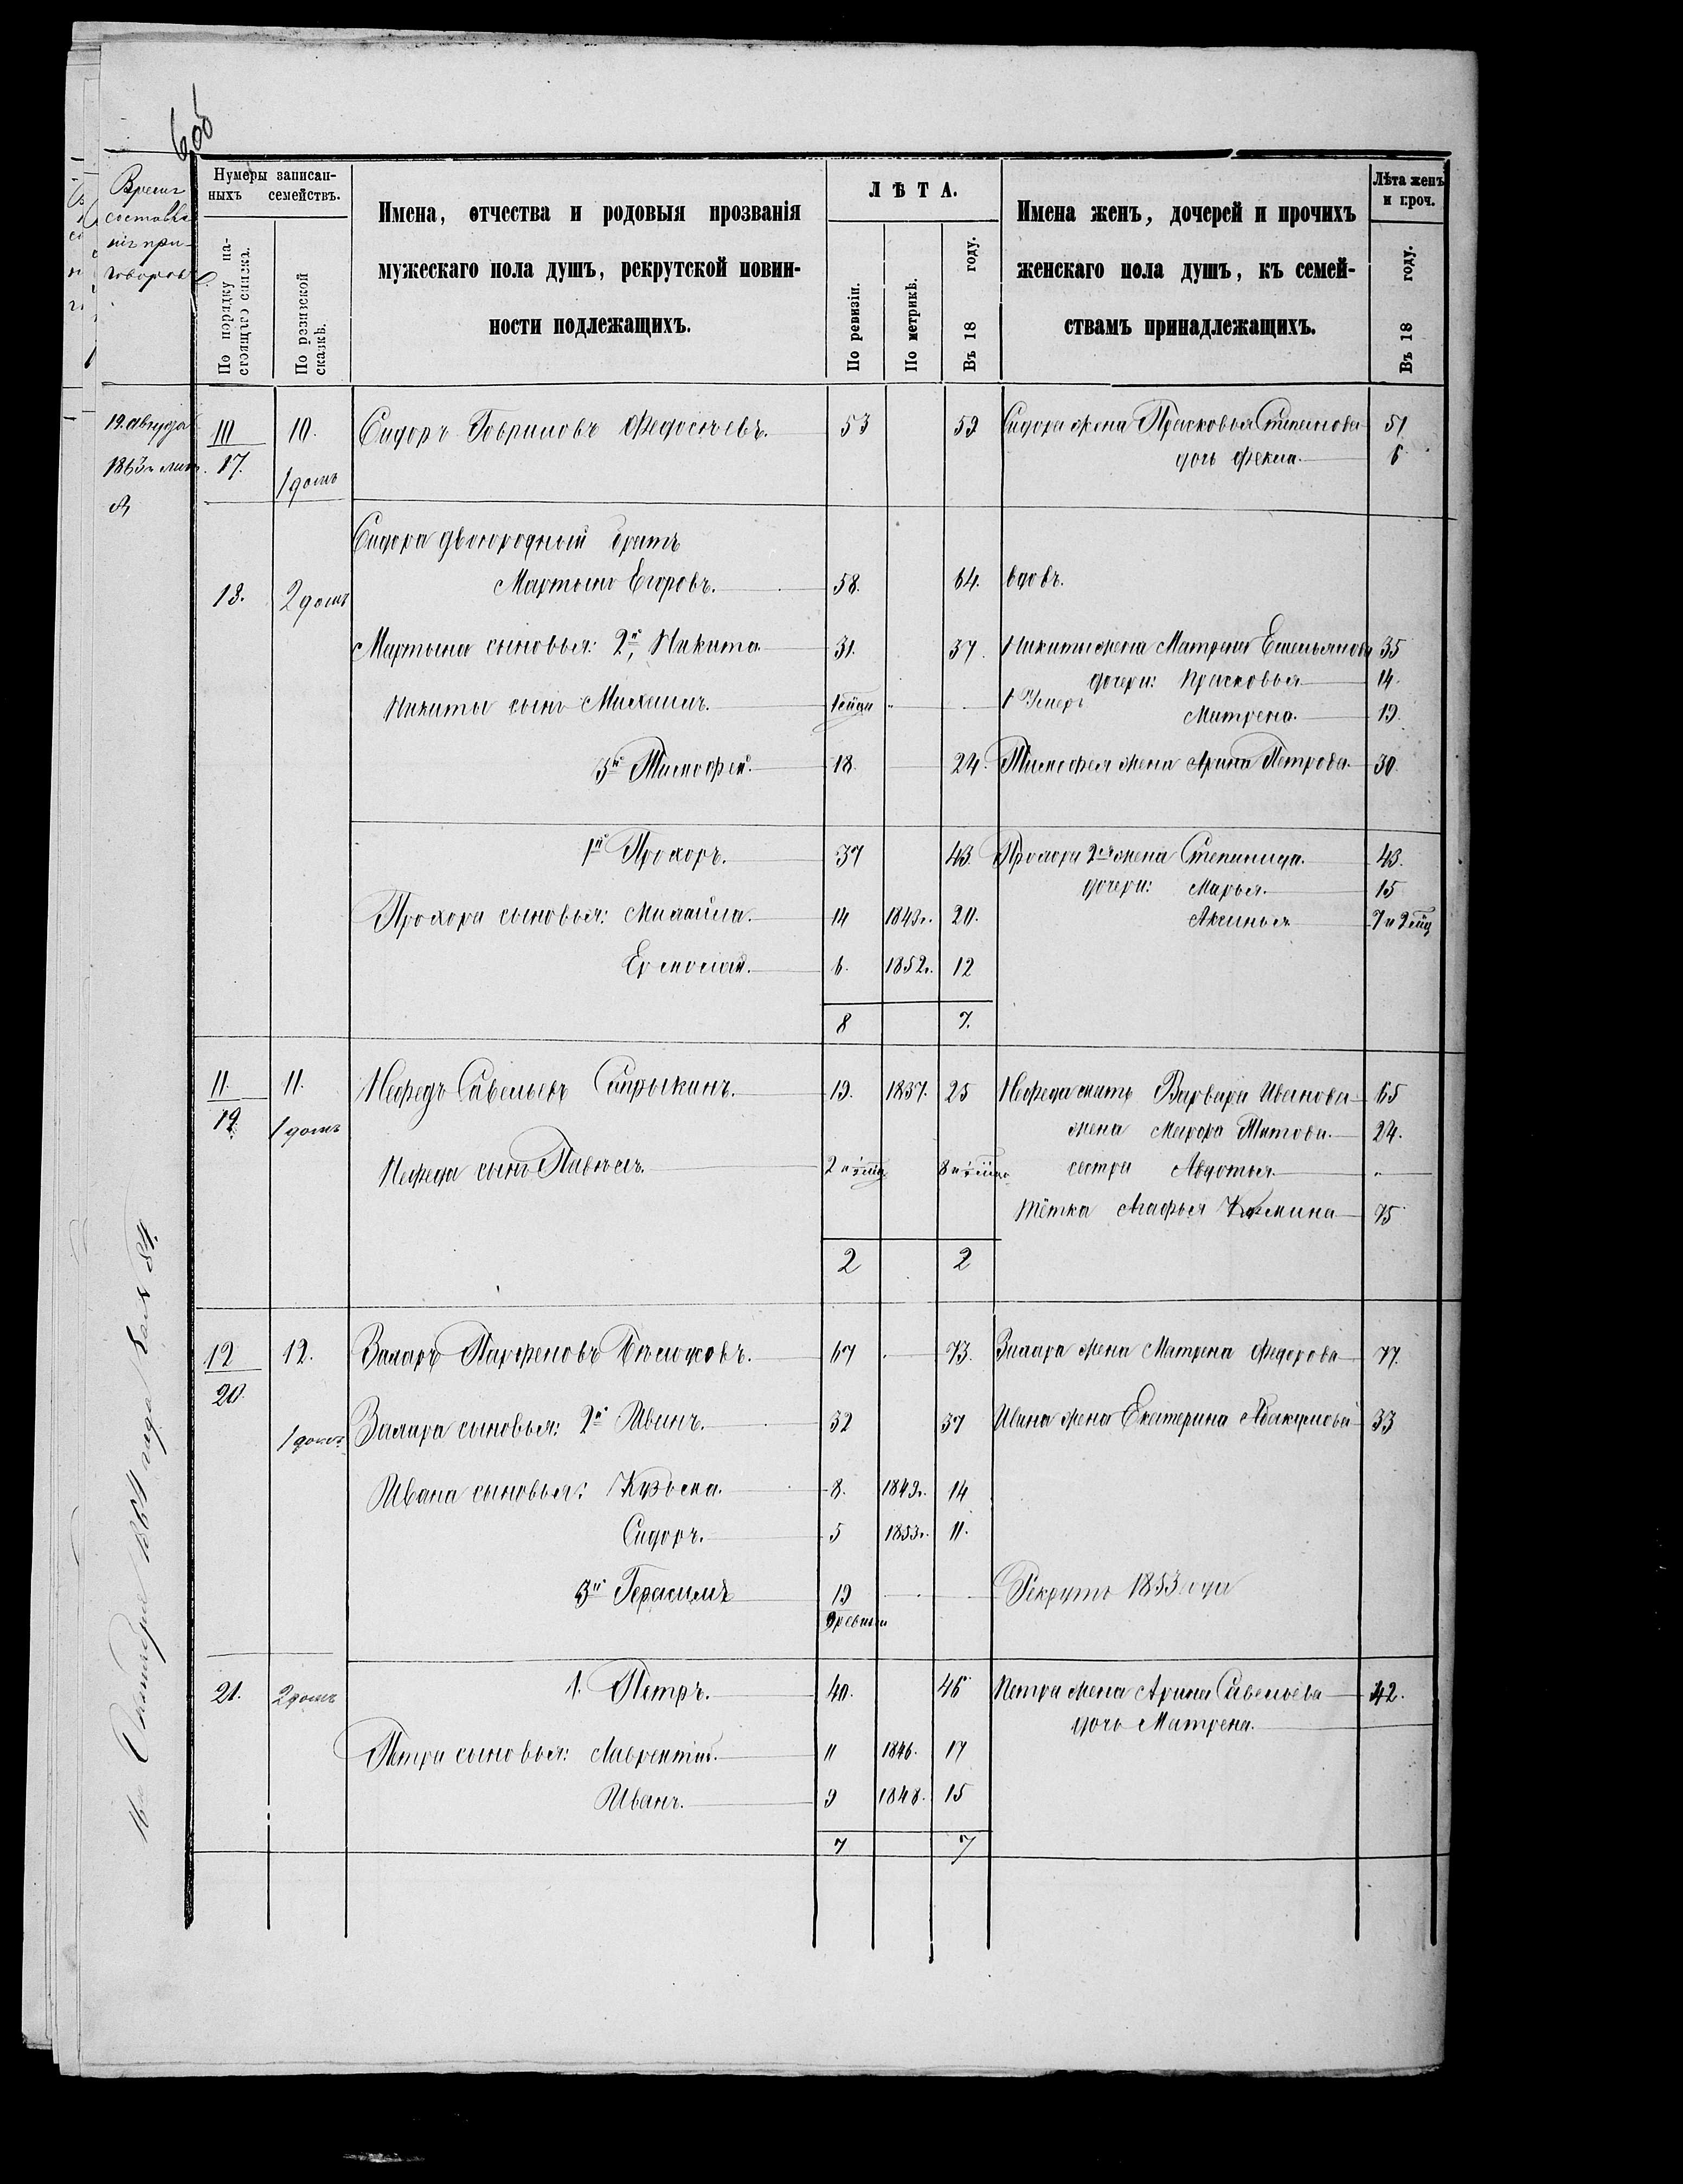 6 об
Время
составле
нія при-
говоровъ
Нумеры записан-
ныхъ семействъ.
По порядку на-
стоящаго списка.
По ревизской
сказкѣ.
Имена, отчества и родовыя прозванія
мужескаго пола душъ, рекрутской повин-
ности подлежащихъ.
ЛѢТА.
По ревизіи.
По метрикѣ.
Въ 18 году.
Имена женъ, дочерей и прочихъ
женскаго пола душъ, къ семей-
ствамъ принадлежащихъ.
Лѣта женъ
и проч.
Въ 18 году.
19. августа 10 10. Сидоръ Федосѣевъ. 53 59 Сидора жена Прасковья Степанова 51
1863 17. 1 домъ дочь Фекла. 6
Сидора двоюродный братъ
18. 2 домъ Мартынъ Егоровъ. 58. 64. вдовъ.
Мартына сыновья: 2й, Никита 31. 37. Никиты жена Матрена Емельянова 35
дочери: Прасковья 14.
Никиты сынъ Михаилъ. Умеръ Матрена. 19.
3й Тимофей. 18. 24. Тимофея жена Арина Петрова. 30.
1й Прохоръ. 37 43. Прохора 2я жена Степанида. 43.
дочери: Марья. 15
Прохора сыновья: Михайла. 14 1843г. 20. Аксинья
Ермолай. 6. 1852г. 12
8 7.
11. 11. Нефедъ Савельевъ 19. 1837. 25 Нефеда мать Варвара Иванова 65
19. 1 домъ жена Мавра Титова. 24.
Нефеда сынъ Павелъ. сестра Авдотья „
Тётка Агафья 75
2 2
12 12. Захаръ Парфеновъ 67 73. Захара жена Матрена Федорова 77.
20.
1 домъ Захара сыновья: 2й Иванъ. 32 37 Ивана жена Екатерина Абакумова 33
Ивана сыновья: Кузьма. 8. 1849г. 14
Сидоръ. 5 1853г. 11.
3й Герасимъ 19 Рекрутъ 1853 года
9 ревизіи
21. 2 домъ 1. Петръ. 40. 46 Петра жена Арина Савельева 42.
дочь Матрена.
Петра сыновья: Лаврентій. 11 1846. 17
Иванъ. 9 1848. 15
7 7
1864 года